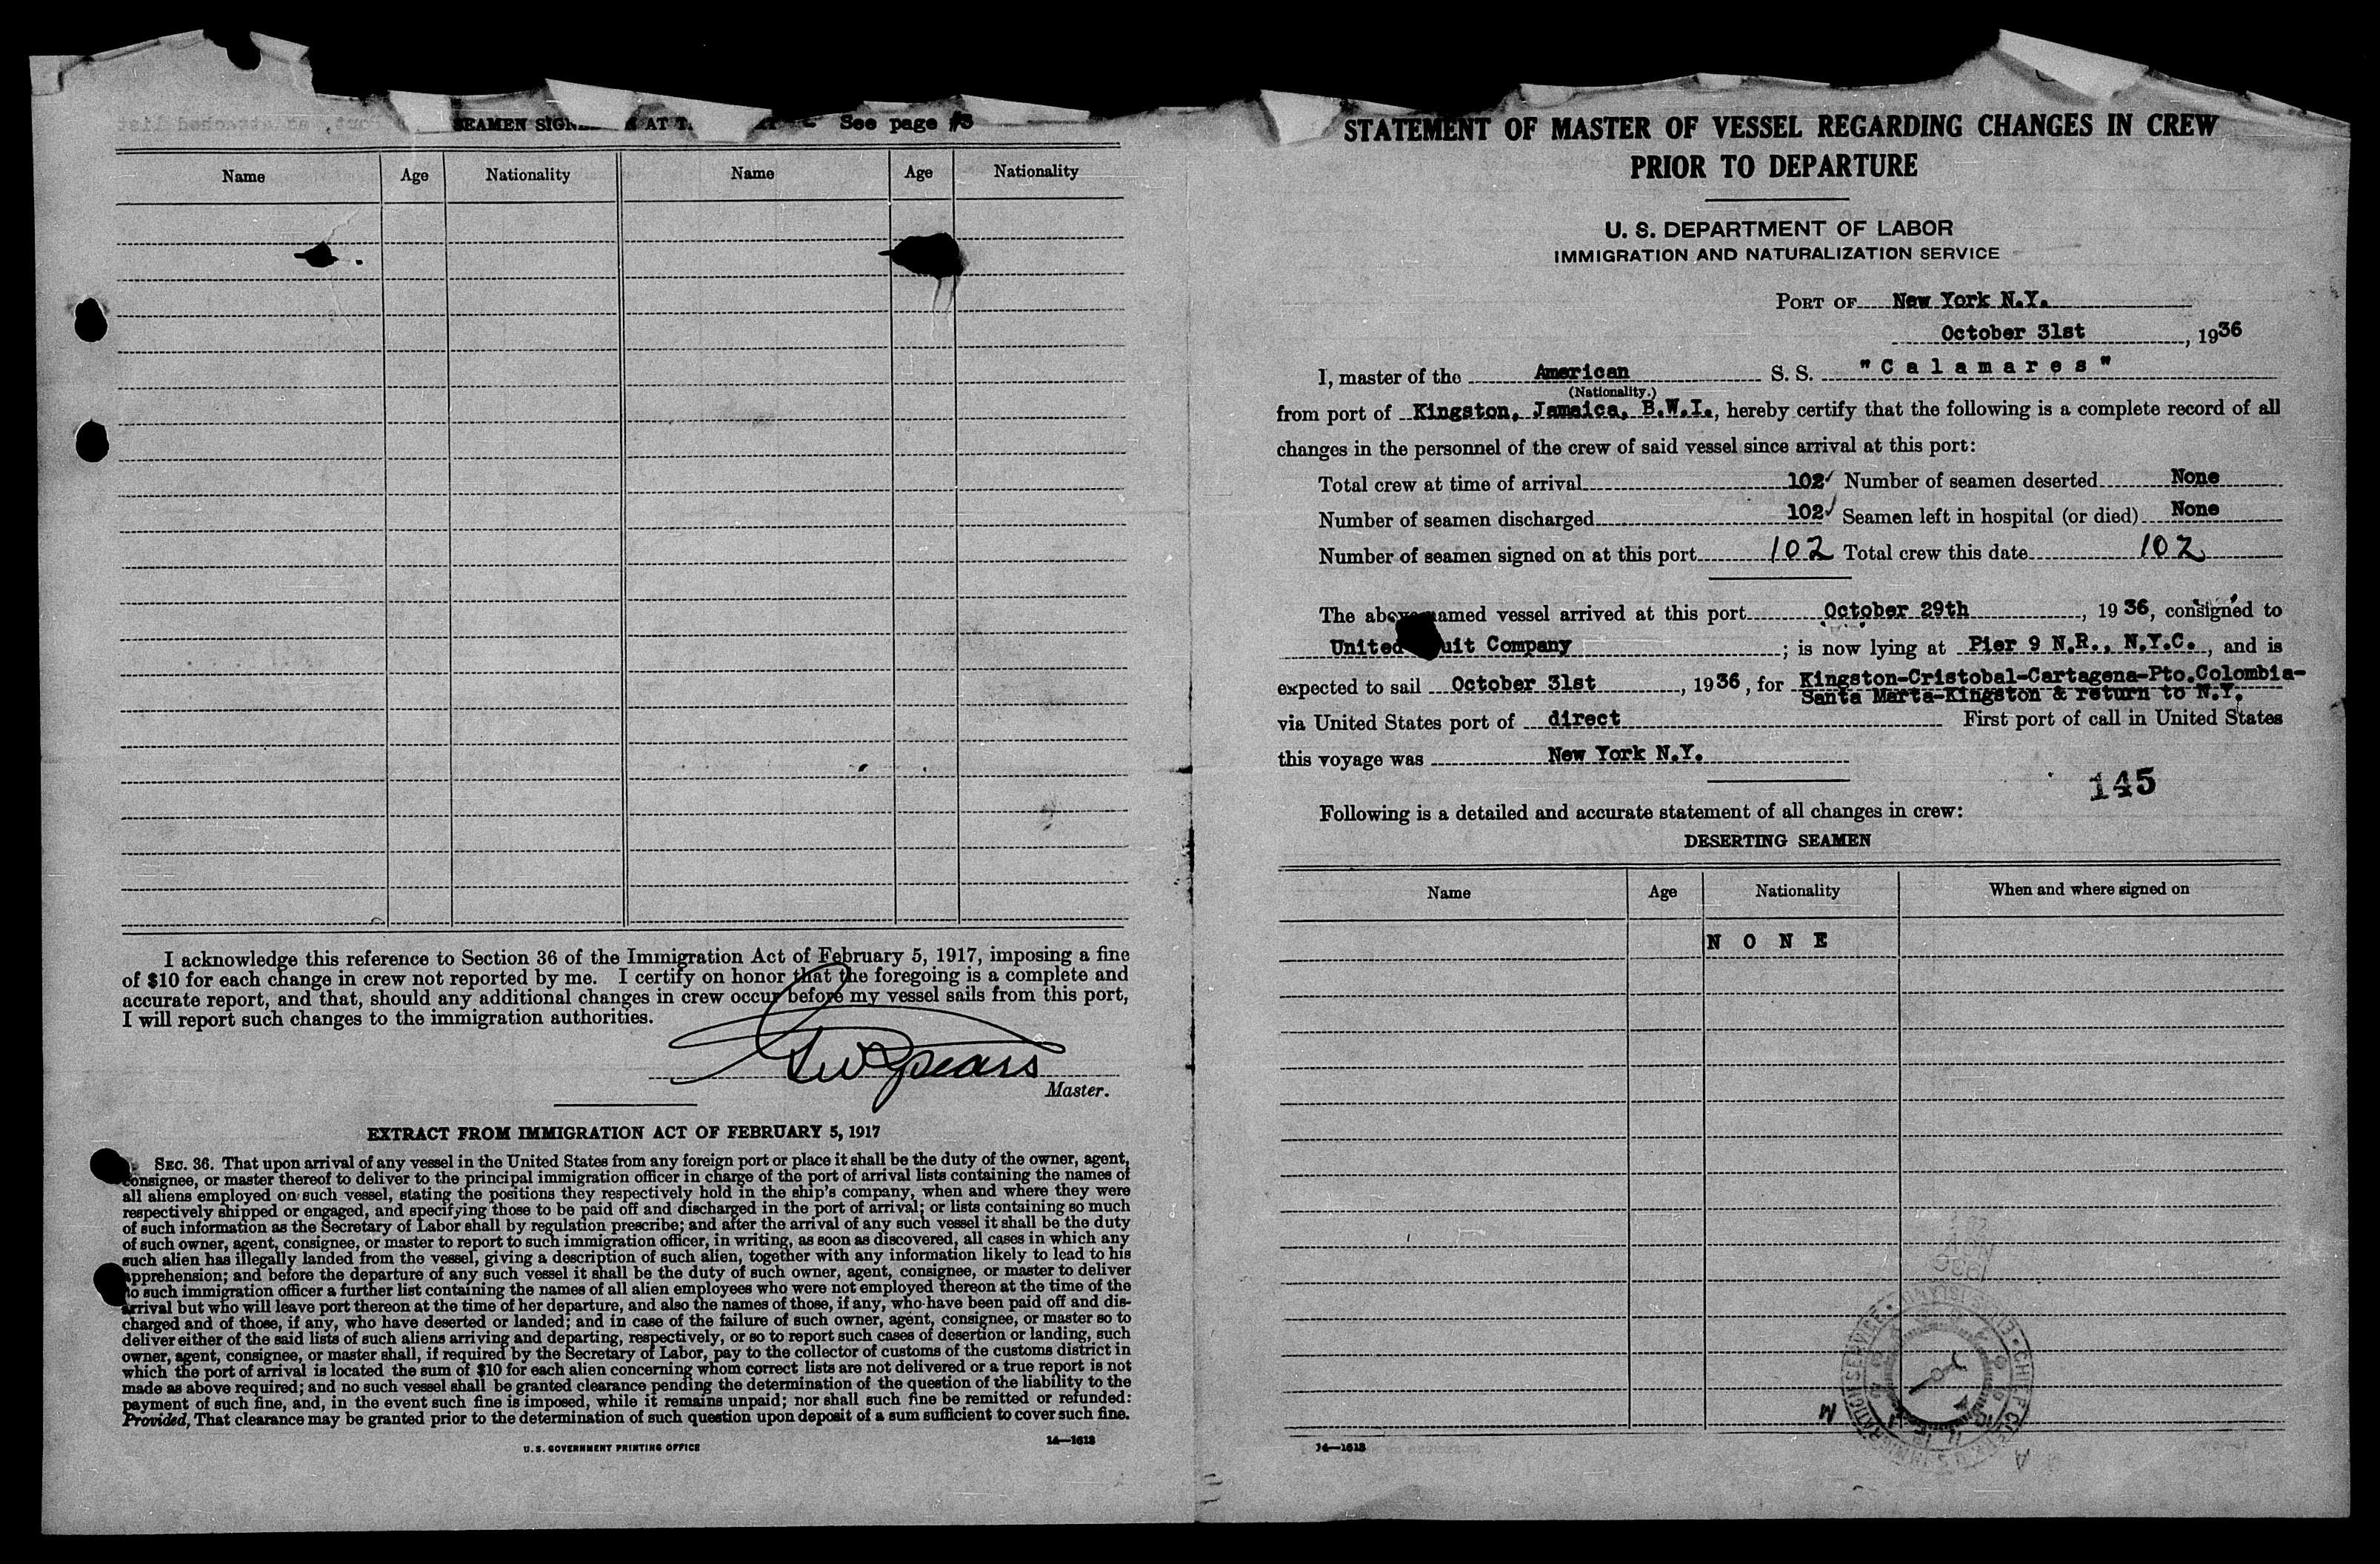 See page #3
Name Age Nationality Name Age Nationality
I acknowledge this reference to Section 36 of the Immigration Act of February 5, 1917, imposing a fine
of $10 for each change in crew not reported by me. I certify on honor that the foregoing is a complete and
accurate report, and that, should any additional changes in crew occur before my vessel sails from this port,
I will report such changes to the immigration authorities.
Master.
EXTRACT FROM IMMIGRATION ACT OF FEBRUARY 5, 1917
SEC. 36. That upon arrival of any vessel in the United States from any foreign port or place it shall be the duty of the owner, agent,
consignee, or master thereof to deliver to the principal immigration officer in charge of the port of arrival lists containing the names of
all aliens employed on such vessel, stating the positions they respectively hold in the ship's company, when and where they were
respectively shipped or engaged, and specifying those to be paid off and discharged in the port of arrival; or lists containing so much
of such information as the Secretary of Labor shall by regulation prescribe; and after the arrival of any such vessel it shall be the duty
of such owner, agent, consignee, or master to report to such immigration officer, in writing, as soon as discovered, all cases in which any
such alien has illegally landed from the vessel, giving a description of such alien, together with any information likely to lead to his
apprehension; and before the departure of any such vessel it shall be the duty of such owner, agent, consignee, or master to deliver
to such immigration officer a further list containing the names of all alien employees who were not employed thereon at the time of the
arrival but who will leave port thereon at the time of her departure, and also the names of those, if any, who have been paid off and dis-
charged and of those, if any, who have deserted or landed; and in case of the failure of such owner, agent, consignee, or master so to
deliver either of the said lists of such aliens arriving and departing, respectively, or so to report such cases of desertion or landing, such
owner, agent, consignee, or master shall, if required by the Secretary of Labor, pay to the collector of customs of the customs district in
which the port of arrival is located the sum of $10 for each alien concerning whom correct lists are not delivered or a true report is not
made as above required; and no such vessel shall be granted clearance pending the determination of the question of the liability to the
payment of such fine, and, in the event such fine is imposed, while it remains unpaid; nor shall such fine be remitted or refunded:
Provided, That clearance may be granted prior to the determination of such question upon deposit of a sum sufficient to cover such fine.
U. S. GOVERNMENT PRINTING OFFICE 14—1613
STATEMENT OF MASTER OF VESSEL REGARDING CHANGES IN CREW
PRIOR TO DEPARTURE
U. S. DEPARTMENT OF LABOR
IMMIGRATION AND NATURALIZATION SERVICE
PORT OF New York N.Y.
October 31st, 1936
I, master of the American S. S. "Calamares"
(Nationality.)
from port of Kingston, Jamaica, B.W.I., hereby certify that the following is a complete record of all
changes in the personnel of the crew of said vessel since arrival at this port:
Total crew at time of arrival 102 Number of seamen deserted None
Number of seamen discharged 102 Seamen left in hospital (or died) None
Number of seamen signed on at this port 102 Total crew this date 102
The above named vessel arrived at this port October 29th, 1936, consigned to
United Company; is now lying at Pier 9 N.R., N.Y.C., and is
expected to sail October 31st, 1936, for Kingston-Cristobal-Cartagena-Pto.Colombia-
Santa Marta-Kingston & return to N.Y.
via United States port of direct First port of call in United States
this voyage was New York N.Y.
145
Following is a detailed and accurate statement of all changes in crew:
DESERTING SEAMEN
Name Age Nationality When and where signed on
NONE
14—1613